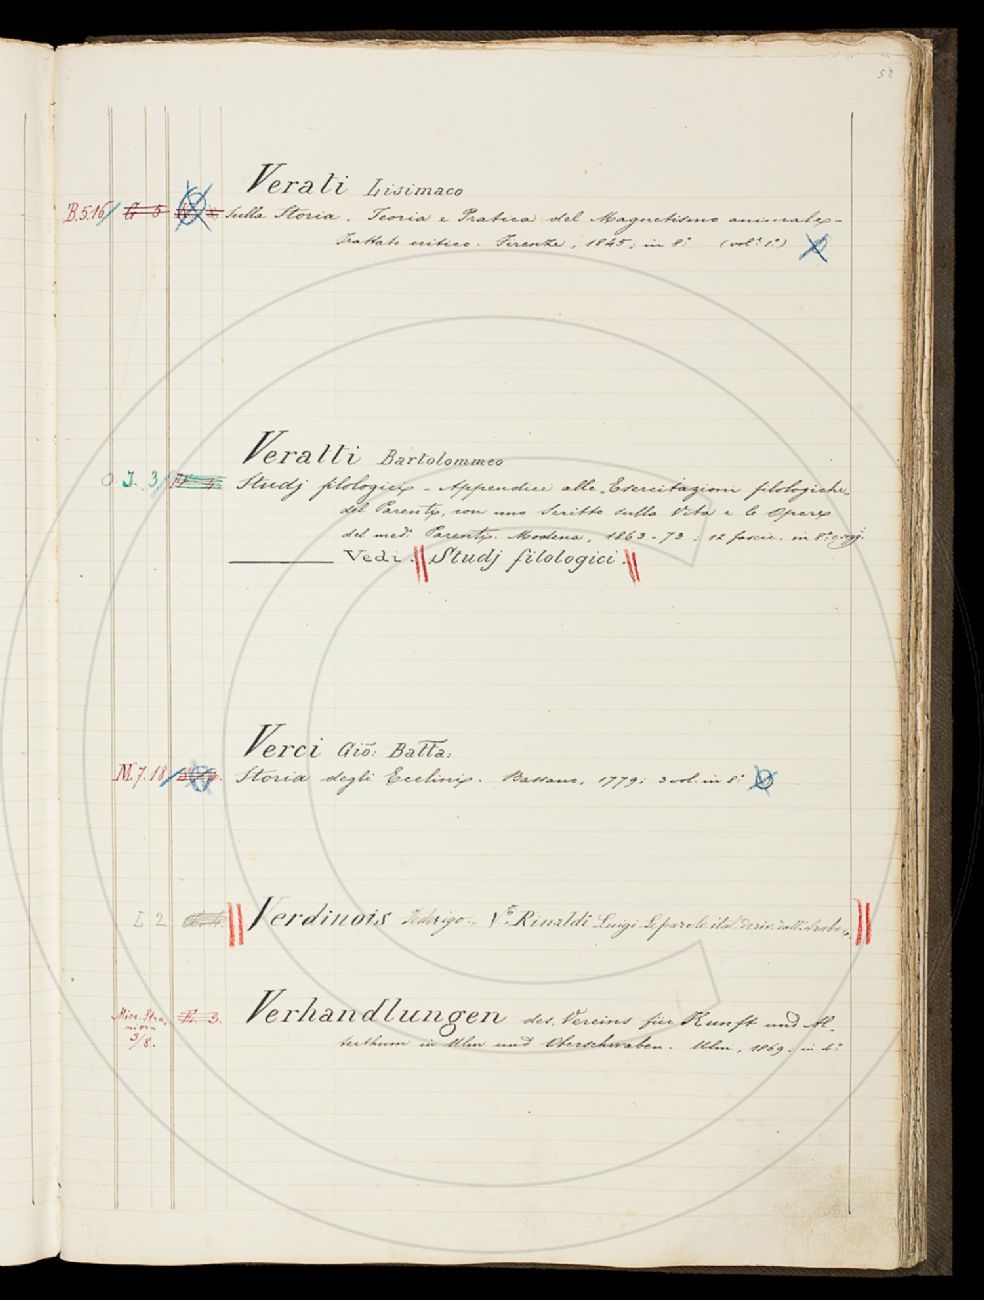 52
Verati Lisimaco
B.5.16 G 5 Sulla Storia, Teoria e Pratica del Magnetismo animale -
Trattato critico. Firenze, 1845; in 8.° (vol.° 1.°)
Veratti Bartolommeo
O. I. 3 Studj filologici - Appendice alle Esercitazioni filologiche
del Parenti, con uno Scritto sulla Vita e le Opere
del med.° Parenti. Modena, 1863-73; 12 fascic. in 8.°
Vedi. Studj filologici.
Verci Gio: Batta:
N.7.18 Storia degli Ecelini. Bassano, 1779; 3 vol. in 8.°
I 2 Verdinois Federigo. V.e Rinaldi Luigi. Le parole ital. deriv. dall'Arabo.
Misc. Stra,
niera
3/8. E. 3. Verhandlungen des Vereins für Kunst und Al-
terthum in Ulm und Oberschwaben. Ulm, 1869. in 4.°